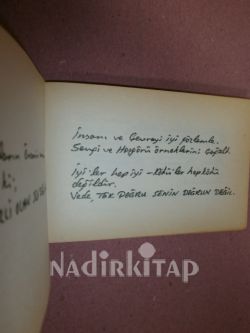 İnsanı ve Çevreyi iyi gözlemle.
Sevgi ve Hoşgörü örneklerini Çoğalt.
İyi'ler hep iyi – Kötü'ler hep kötü
değildir.
Ve de, TEK DOĞRU SENİN DOĞRUN DEĞİL.
NADİRKİTAP